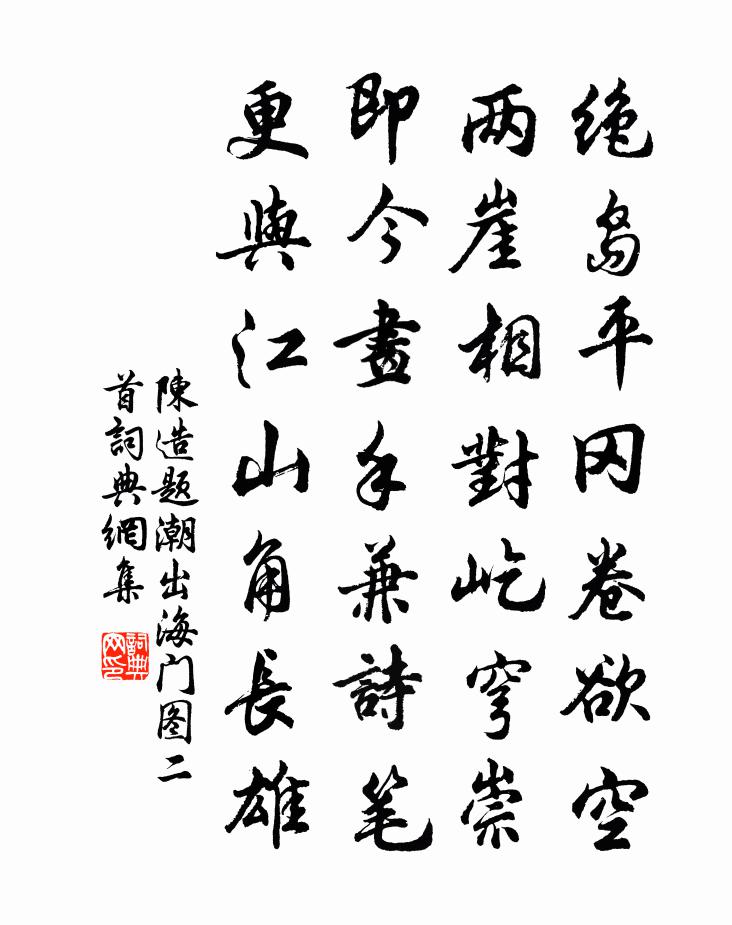 绝岛平冈卷欲空
两崖相對屹穹崇
即今畫手兼詩笔
更與江山角長雄
陳造题潮出海门图二
首詞典網集
詞典网印